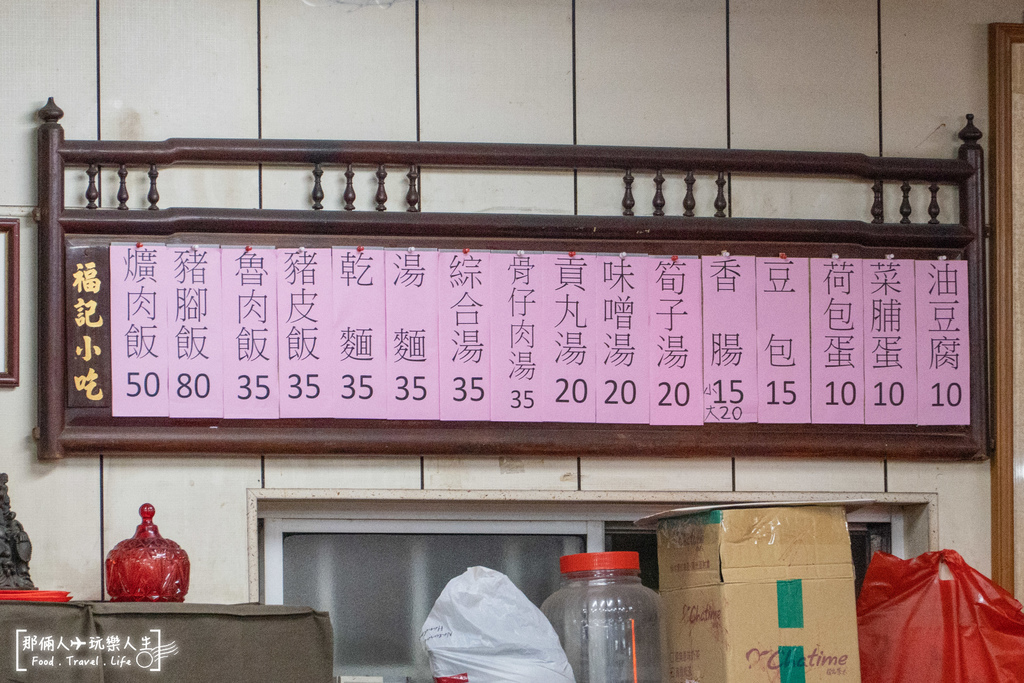 福記小吃
爌肉飯 50
豬腳飯 80
魯肉飯 35
豬皮飯 35
乾麵 35
湯麵 35
綜合湯 35
骨仔肉湯 35
貢丸湯 20
味噌湯 20
筍子湯 20
香腸 小15 大20
豆包 15
荷包蛋 10
菜脯蛋 10
油豆腐 10
Chatime
Chatime
那倆人 玩樂人生
Food . Travel . Life